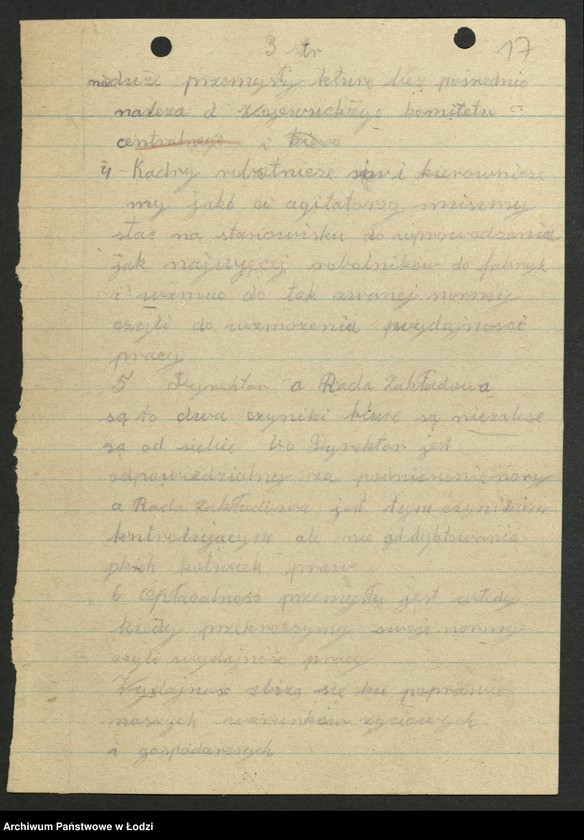 3 str
17
nadruże przemysły kturę bez pośrednio
należą d Wojewuckiego komitetu
centralnego i biuro
4 - Kadry robotnicze i kierownicze
my jako ci agitatorzy musimy
stać na stanowisku do wprowadzenia
jak najwięcej robotników do fabryk
i wzmuc do tak zwanej normy
czyli do wzmożenia wydajności
pracy
5 Dyrektor a Rada Zakładowa
są to dwa czyniki kture są niezależne
są od siebie bo Dyrektor jest
odpowiedzialny za normy
a Rada Zakładowa jest tym czynikiem
kontrolujacym ale nie od dyktowania
praw
6 Opłacalność przemysłu jest wtedy
kiedy przekroczymy swoje normy
czyli wydajność pracy
Wydajność zbliża się ku poprawie
naszych warunków życiowych
i gospodarczych
Archiwum Państwowe w Łodzi